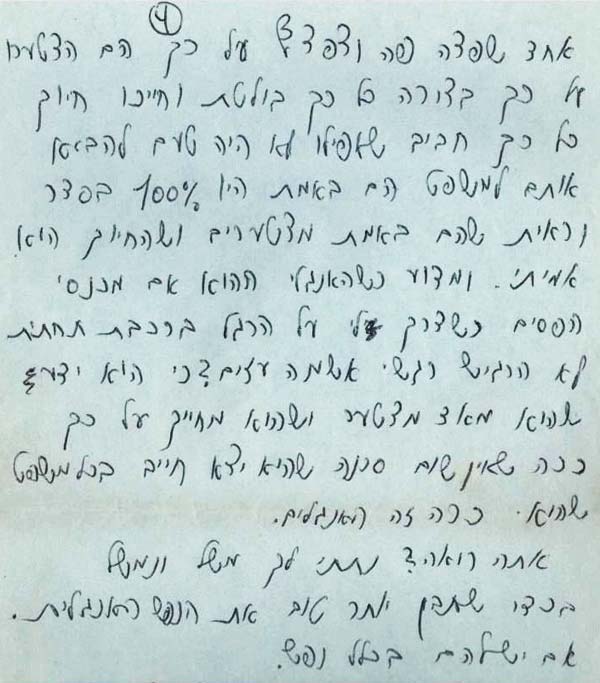 4
אחד שפצה פה וצפצף על כך הם הצטערו
על כך בצורה כל כך בולטת וחייכו חיוך
כל כך חביב שאפילו לא היה טעם להביא
אותם למשפט הם באמת היו 100% בסדר
וראית שהם באמת מצטערים ושהחיוך הוא
אמיתי. ומדוע כשהאנגלי ההוא עם מכנסי
הפסים כשדרך לי על הרגל ברכבת תחתית
לא הרגיש רגשי אשמה עצים? כי הוא ידע
שהוא מאד מצטער ושהוא מחייך על כך
ככה שאין שום סכנה שהוא יצא חייב בכל משפט
שהוא. ככה זה האנגלים.
אתה רואה? נתתי לך משל ונמשל
בכדי שתבין יותר טוב את הנפש האנגלית.
אם יש להם בכלל נפש.